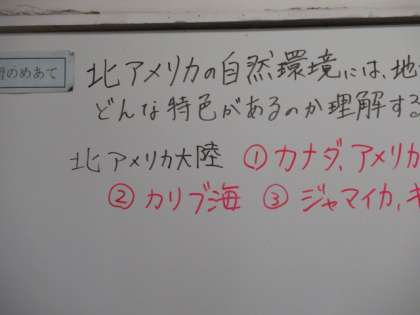 のめあて
北アメリカの自然環境には、地
どんな特色があるのか理解する
北アメリカ大陸 ① カナダ、アメリカ
② カリブ海 ③ ジャマイカ、キ